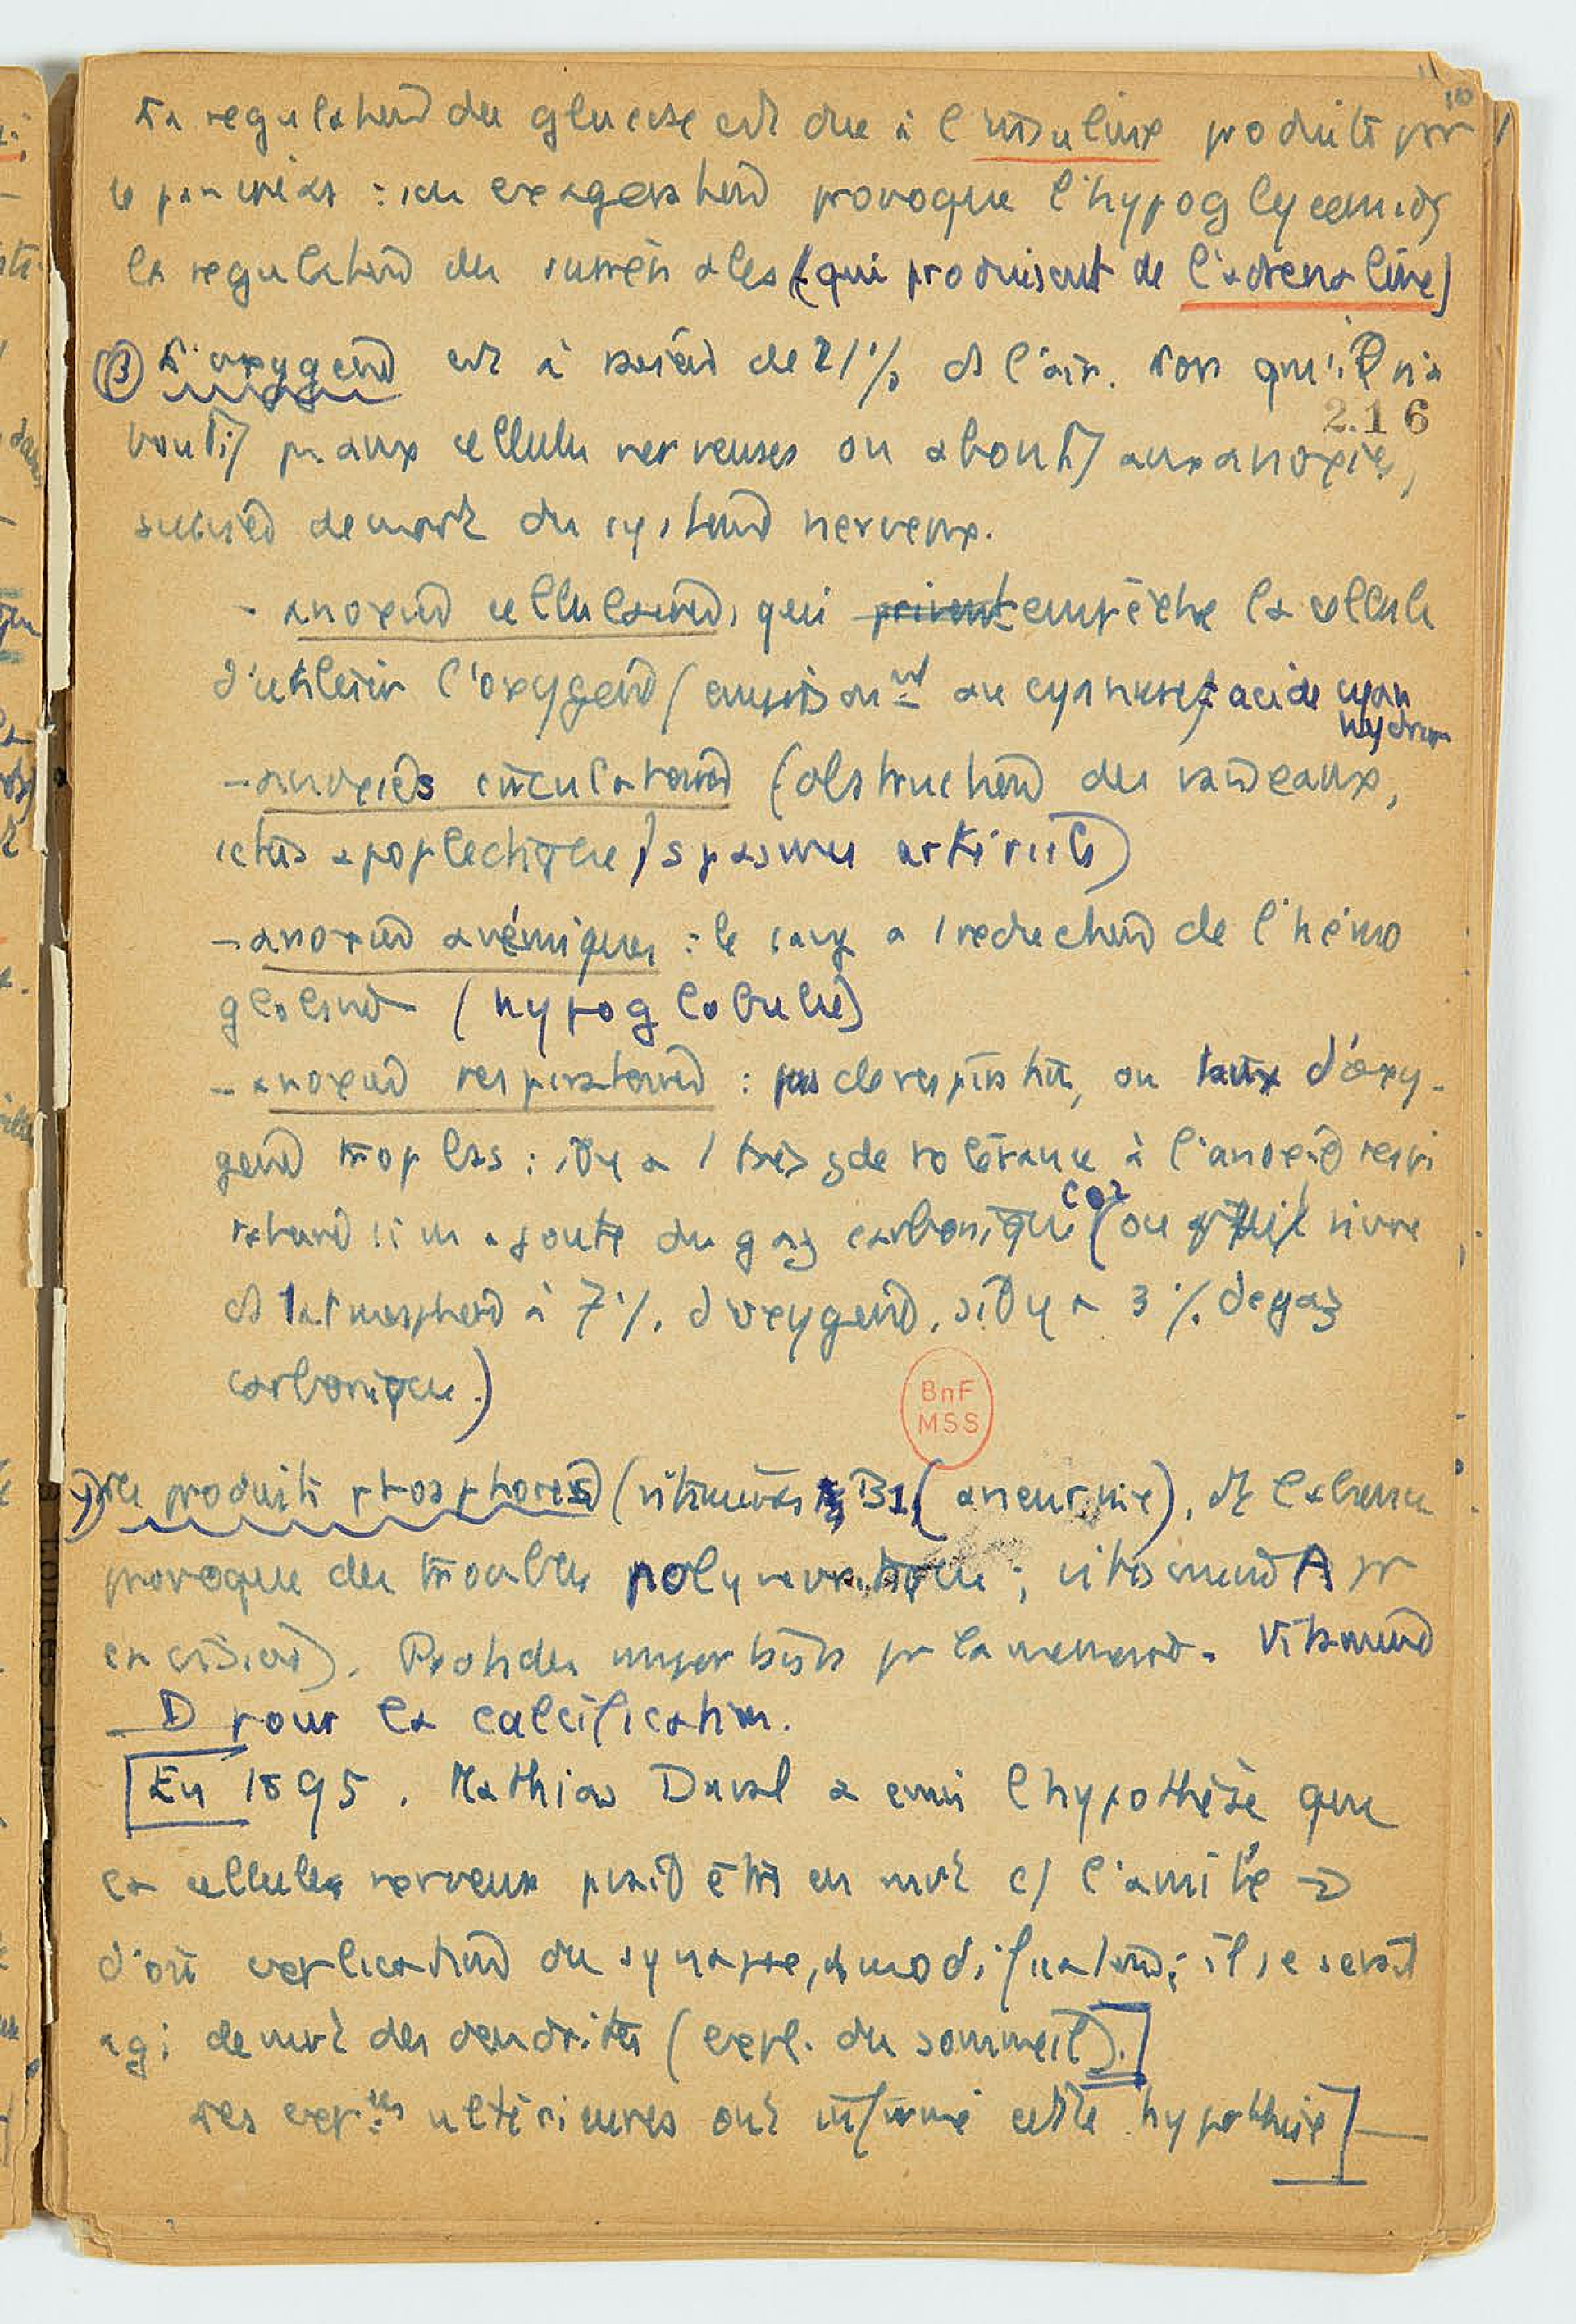 La regulation du glucose est due à l'insuline produite par
le pancréas : son exageration provoque l'hypoglycemie,
la regulation des surrénales (qui produisent de l'adrenaline)
β) L'oxygene est à raison de 21% ds l'air. Lors qu'il n'a
216
pas aux cellules nerveuses on aboutit aux anoxies,
de mort du systeme nerveux.
- anoxie cellulaire, qui privent empêche la cellule
d'utiliser l'oxygene (empoisonnt au cyanure) = acide cyan
hydrique
- anoxies circulatoire (obstruction des vaisseaux,
ictus apoplectique, spasmes arteriels)
- anoxie anémique : le sang a 1 reduction de l'hémo
globine (hypoglobulie)
- anoxie respiratoire : pas de respirat, ou taux d'oxy-
gene trop bas : il y a 1 très gde tolérance à l'anoxie respi
ratoire si on ajoute du gaz carbonique CO2 (on vivre
ds 1 atmosphere à 7% d'oxygene, s'il y a 3% de gaz
carbonique.)
BnF
MSS
γ) Les produits phosphorés (vitamines B1 (aneurine), dt l'absence
provoque des troubles polynevritique ; vitamine A pr
la vision). Protides importants pr la memoire. Vitamine
D pour la calcification.
[En 1895, Mathias Duval a emis l'hypothèse que
la cellules nerveuse pouvait être en mvt c/ l'amibe →
d'où explication du synapse, modification ; il se serait
agi de mvt des dendrites (expl. du sommeil).]
Les expces ultérieures ont infirmé cette hypothèse] —